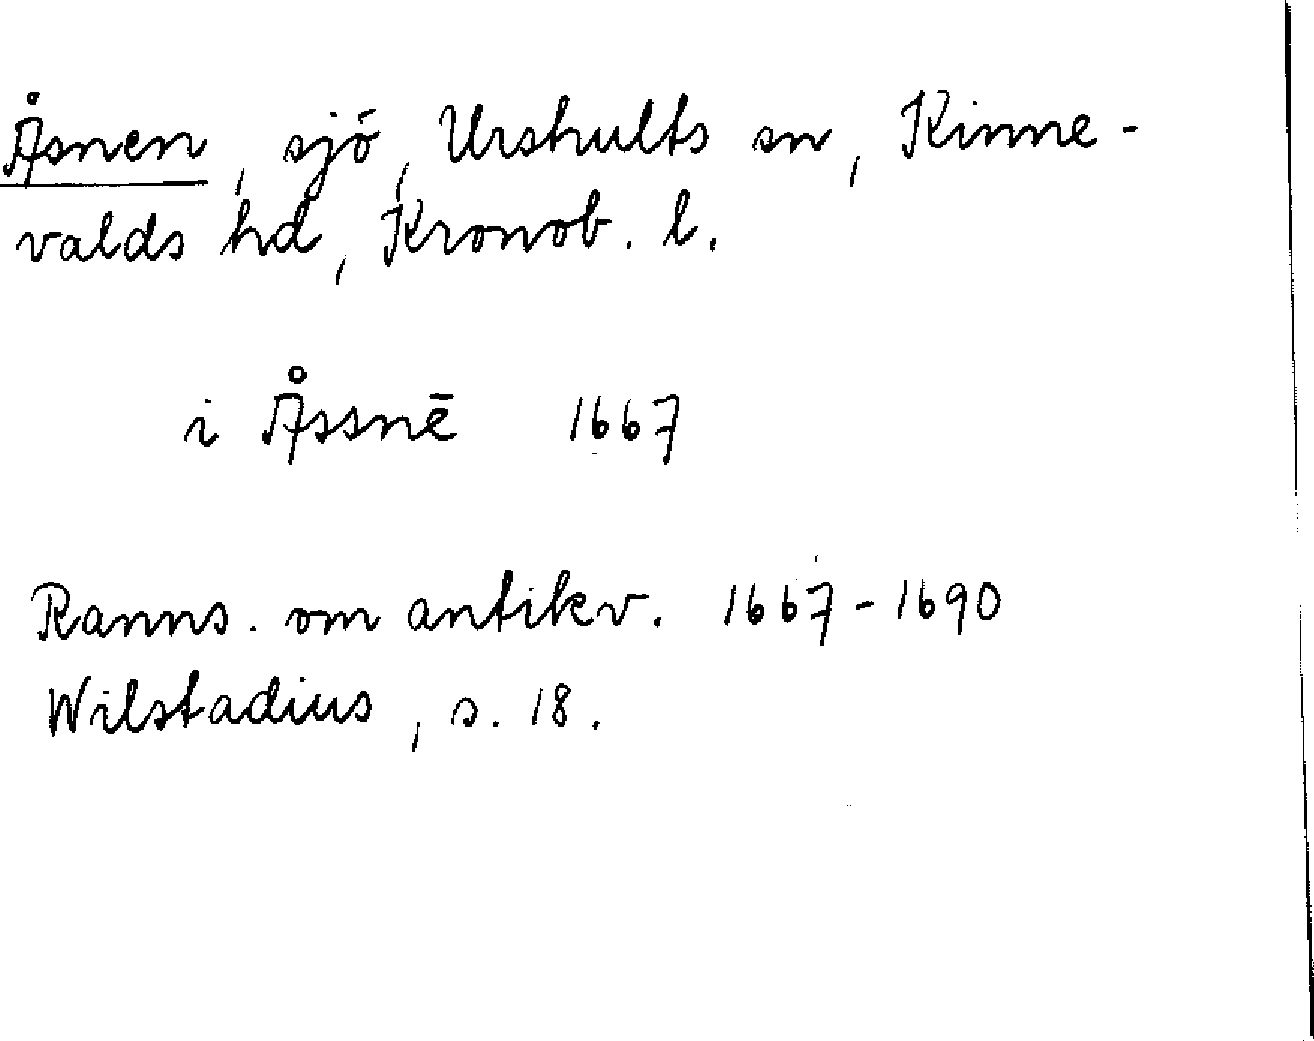 Åsnen, sjö, Urshults sn, Kinne-
valds hd, Kronob. l.
i Åssnē 1667
Ranns. om antikv. 1667-1690
Wilstadius, s. 18.